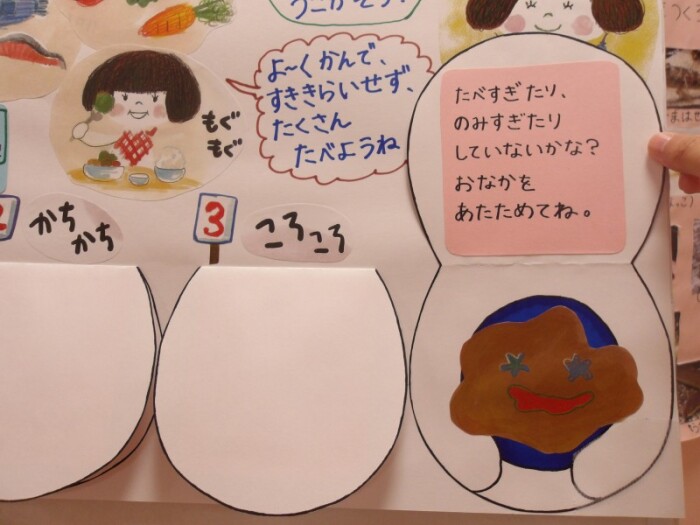 よ〜くかんで、
すききらいせず、
たくさん
たべようね
もぐ
もぐ
たべすぎたり、
のみすぎたり
していないかな?
おなかを
あたためてね。
かち
かち
3
ころころ